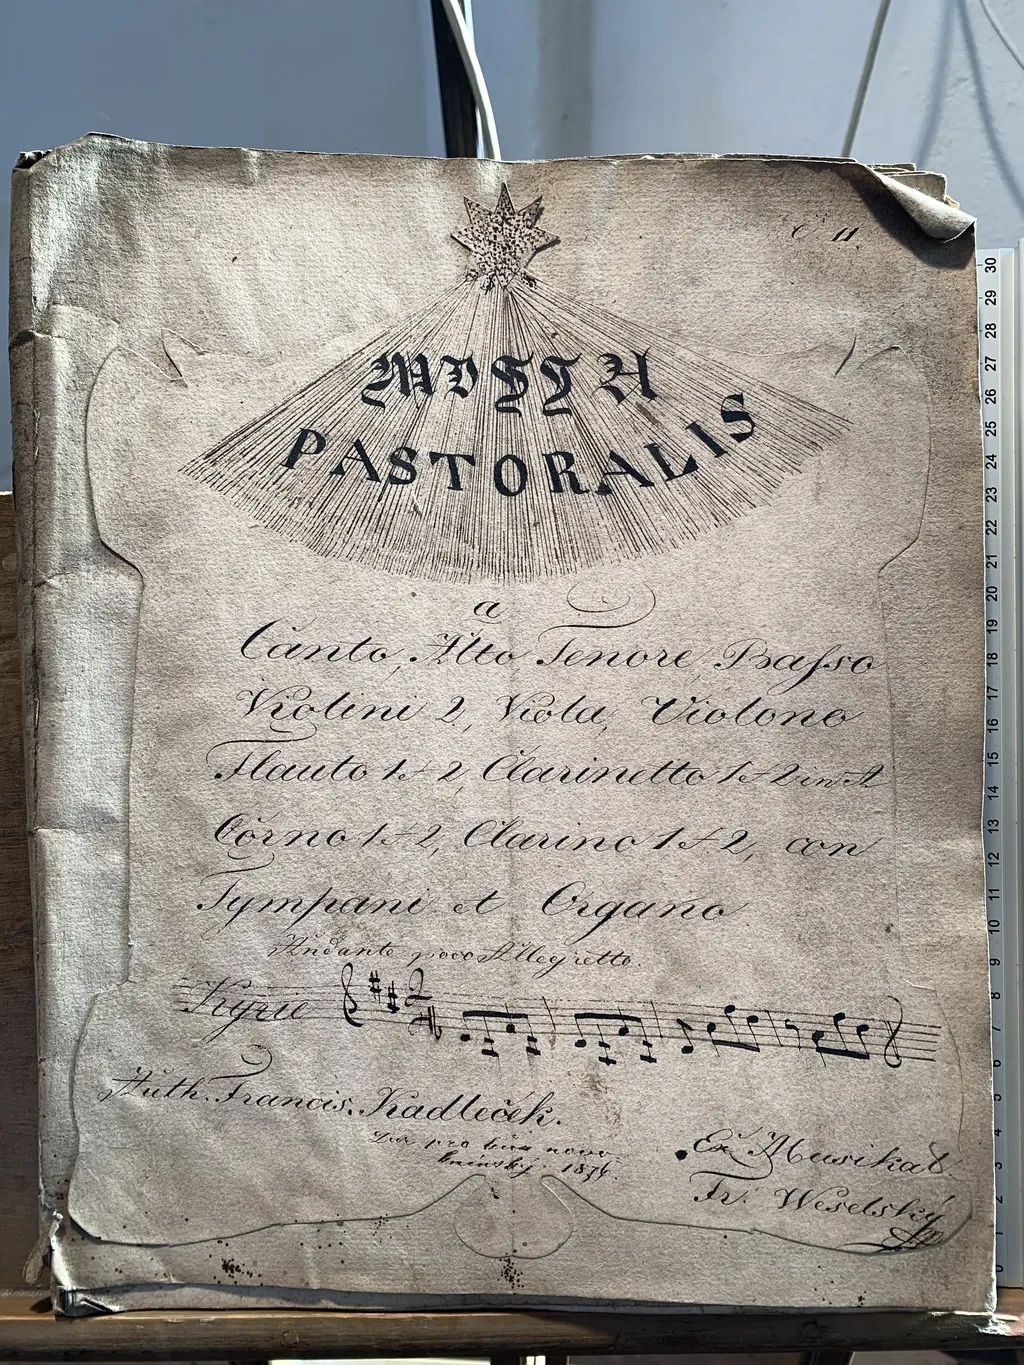 MISSA
PASTORALIS
a
Canto, Alto Tenore, Basso
Violini 2, Viola, Violono
Flauto 1 et 2, Clarinetto 1 et 2 in A
Corno 1 et 2, Clarino 1 et 2, con
Tympani et Organo
Andante poco Allegretto.
Kyrie
Auth. Francis. Kadleček.
Dar pro kůr novo-
1876.
Ex Musikal
Fr. Weselský
30
29
28
27
26
25
24
23
22
21
20
19
18
17
16
15
14
13
12
11
10
9
8
7
6
5
4
3
2
1
0